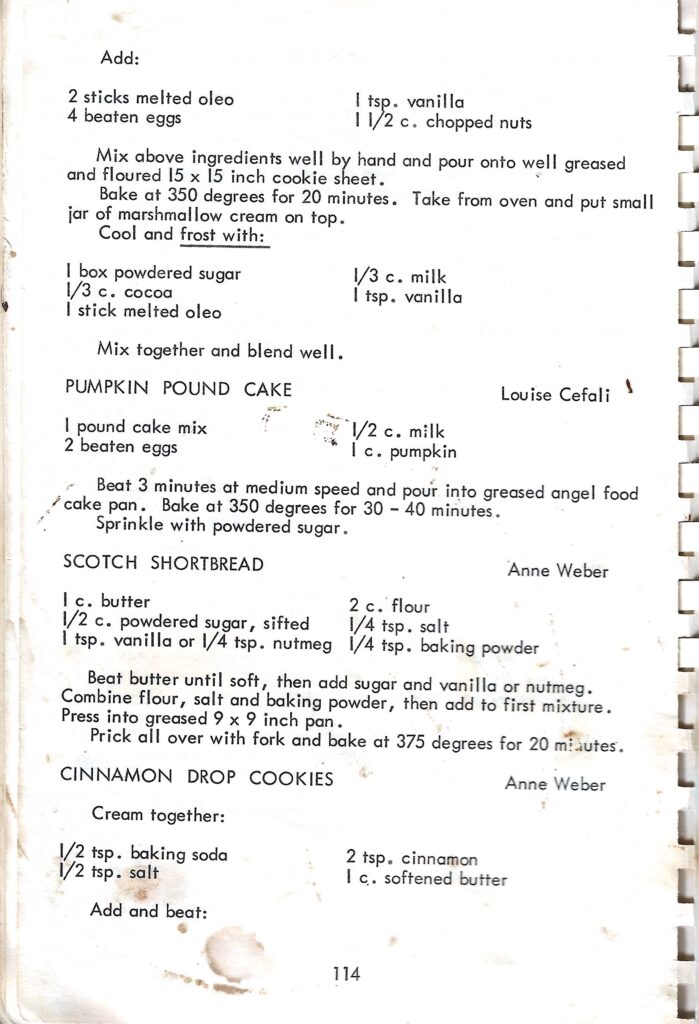 Add:
2 sticks melted oleo 1 tsp. vanilla
4 beaten eggs 1 1/2 c. chopped nuts
Mix above ingredients well by hand and pour onto well greased
and floured 15 x 15 inch cookie sheet.
Bake at 350 degrees for 20 minutes. Take from oven and put small
jar of marshmallow cream on top.
Cool and frost with:
1 box powdered sugar 1/3 c. milk
1/3 c. cocoa 1 tsp. vanilla
1 stick melted oleo
Mix together and blend well.
PUMPKIN POUND CAKE Louise Cefali
1 pound cake mix 1/2 c. milk
2 beaten eggs 1 c. pumpkin
Beat 3 minutes at medium speed and pour into greased angel food
cake pan. Bake at 350 degrees for 30 - 40 minutes.
Sprinkle with powdered sugar.
SCOTCH SHORTBREAD Anne Weber
1 c. butter 2 c. flour
1/2 c. powdered sugar, sifted 1/4 tsp. salt
1 tsp. vanilla or 1/4 tsp. nutmeg 1/4 tsp. baking powder
Beat butter until soft, then add sugar and vanilla or nutmeg.
Combine flour, salt and baking powder, then add to first mixture.
Press into greased 9 x 9 inch pan.
Prick all over with fork and bake at 375 degrees for 20 minutes.
CINNAMON DROP COOKIES Anne Weber
Cream together:
1/2 tsp. baking soda 2 tsp. cinnamon
1/2 tsp. salt 1 c. softened butter
Add and beat:
114